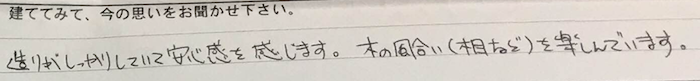 建ててみて、今の思いをお聞かせ下さい。
造りがしっかりしていて安心感を感じます。木の風合い(木目など)を楽しんでいます。